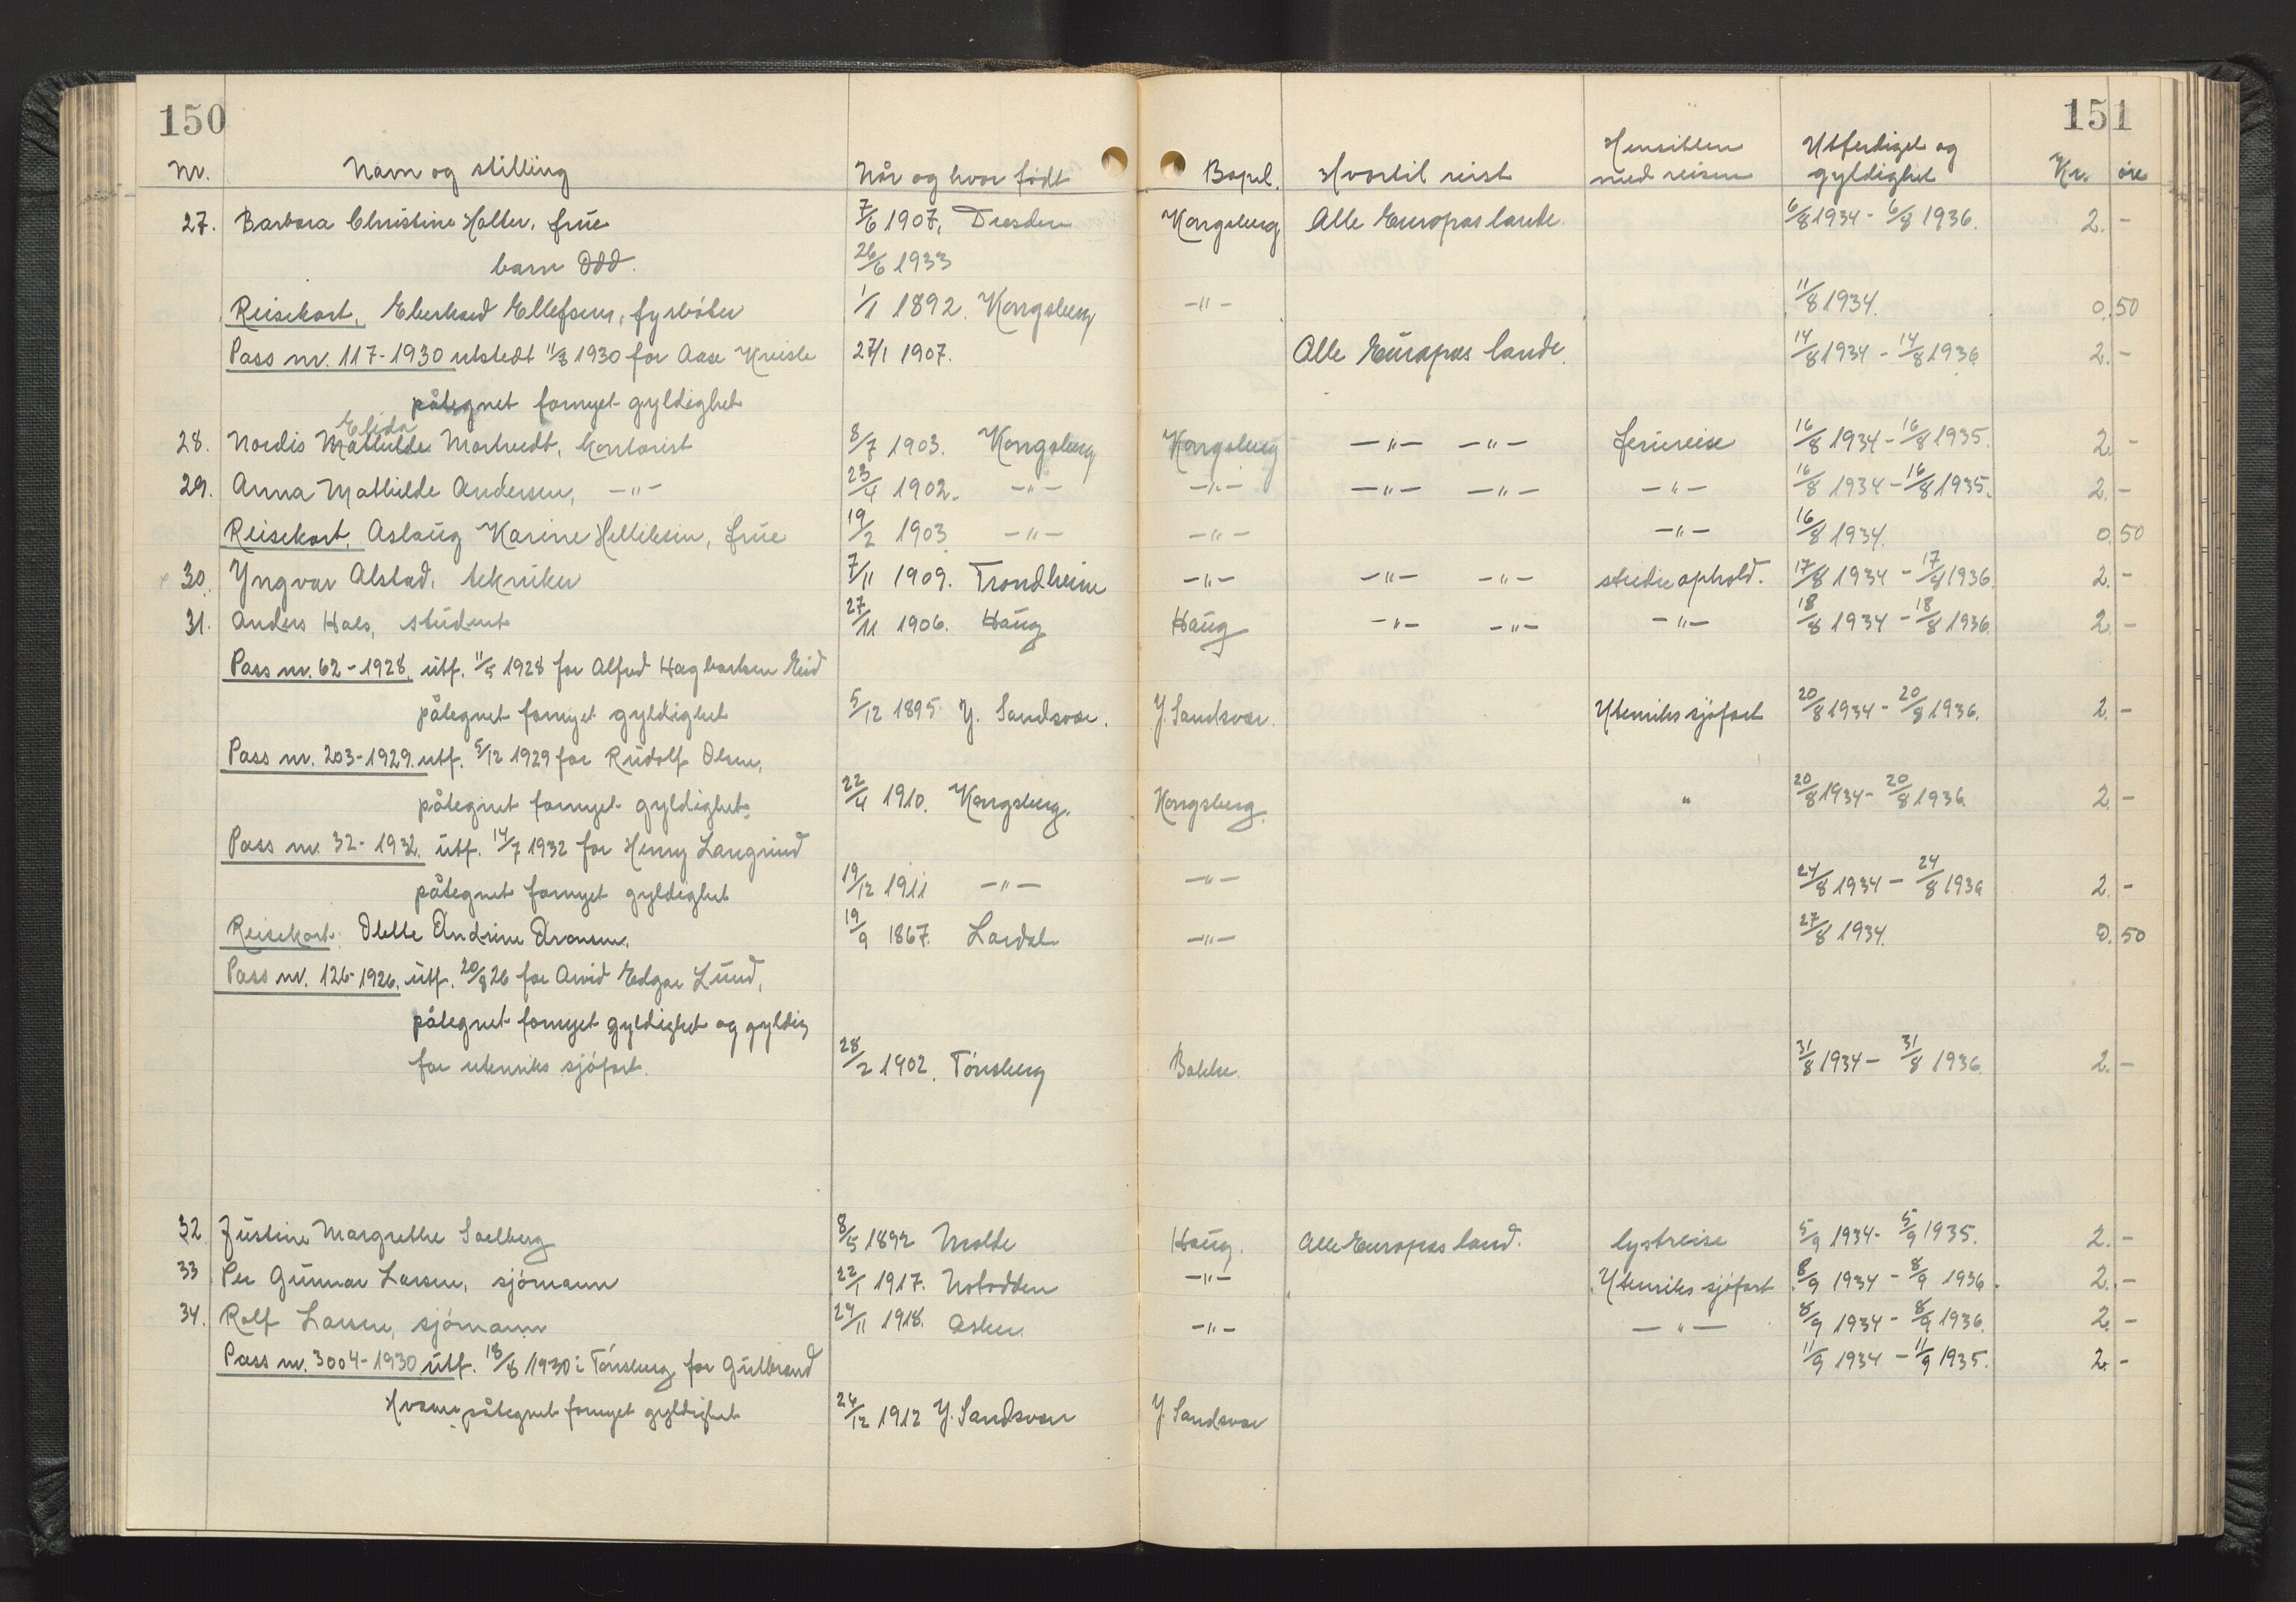 150 151
Nr. Navn og stilling Når og hvor født Bopel. Hvortil reist Hensikten med reisen Utferdiget og gyldighet Kr. øre
27. Barbara Christine Holler, frue 7/6 1907, Dresden Kongsberg Alle Europas lande. 6/8 1934 - 6/8 1936. 2. -
barn Odd. 26/6 1933
Reisekort. Ellefsen, fyrbøter 1/1 1892. Kongsberg -"- 11/8 1934. 0. 50
Pass nr. 117-1930 utstedt 11/3 1930 for Aase 27/1 1907. Alle Europas lande. 14/8 1934 - 14/8 1936 2. -
påtegnet fornyet gyldighet
Elida
28. Nordis Mathilde Mortvedt, kontorist 8/7 1903. Kongsberg Kongsberg -"- -"- feriereise 16/8 1934 - 16/8 1935. 2. -
29. Anna Mathilde Andersen, -"- 23/4 1902. -"- -"- -"- -"- -"- 16/8 1934 - 16/8 1935. 2. -
Reisekort. Aslaug Karine Helliksen, frue 19/2 1903 -"- -"- -"- 16/8 1934. 0. 50
30. Yngvar Alstad, tekniker 7/11 1909. Trondheim -"- -"- -"- studieophold. 17/8 1934 - 17/8 1936. 2. -
31. Anders Hals, student 27/11 1906. Haug Haug -"- -"- -"- 18/8 1934 - 18/8 1936. 2. -
Pass nr. 62-1928. utf. 11/5 1928 for Alfred Hagbartsen Eid
påtegnet fornyet gyldighet 5/12 1895 Y. Sandsvær. Y. Sandsvær. Utenriks sjøfart 20/8 1934 - 20/8 1936. 2. -
Pass nr. 203-1929. utf. 5/12 1929 for Rudolf Olsen,
påtegnet fornyet gyldighet. 22/4 1910. Kongsberg. Kongsberg. " 20/8 1934 - 20/8 1936 2. -
Pass nr. 32-1932. utf. 14/7 1932 for Henry Langrind
påtegnet fornyet gyldighet 19/12 1911 -"- -"- 24/8 1934 - 24/8 1936 2. -
Reisekort: Andrine Aronsen. 19/9 1867. Lardal -"- 27/8 1934. 0. 50
Pass nr. 126-1926. utf. 20/8 26 for Arvid Edgar Lund,
påtegnet fornyet gyldighet og gyldig
for utenriks sjøfart. 28/2 1902. Tønsberg Bakke. 31/8 1934 - 31/8 1936. 2. -
32. Justine Margrethe Solberg 8/5 1892 Molde Haug. Alle Europas land. lystreise 5/9 1934 - 5/9 1935. 2. -
33 Per Gunnar Larsen, sjømann 22/1 1917. Notodden -"- Utenriks sjøfart 8/9 1934 - 8/9 1936. 2. -
34. Rolf Larsen, sjømann 24/11 1918. Asker. -"- -"- 8/9 1934 - 8/9 1936. 2. -
Pass nr. 3004-1930 utf. 18/8 1930 i Tønsberg for Gulbrand 11/9 1934 - 11/9 1935. 2. -
Hvame påtegnet fornyet gyldighet 26/12 1912 Y. Sandsvær Y. Sandsvær